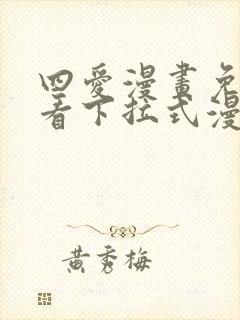 四爱漫畫免
看下拉式漫
黄秀梅